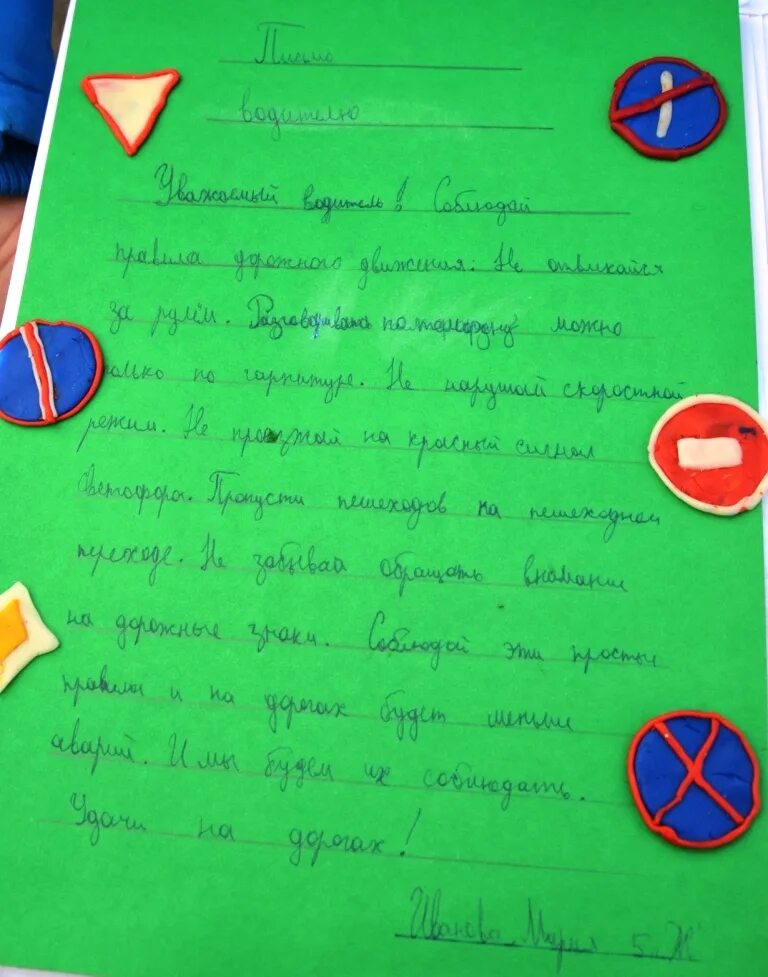 Письмо
водителю
Уважаемый водитель! Соблюдай
правила дорожного движения. Не отвлекайся
за рулём. Разговаривать по телефону можно
только по гарнитуре. Не нарушай скоростной
режим. Не проезжай на красный сигнал
светофора. Пропусти пешеходов на пешеходном
переходе. Не забывай обращать внимание
на дорожные знаки. Соблюдай эти простые
правила и на дорогах будет меньше
аварий. И мы будем их соблюдать.
Удачи на дорогах!
Иванова Мария 5 „Ж"